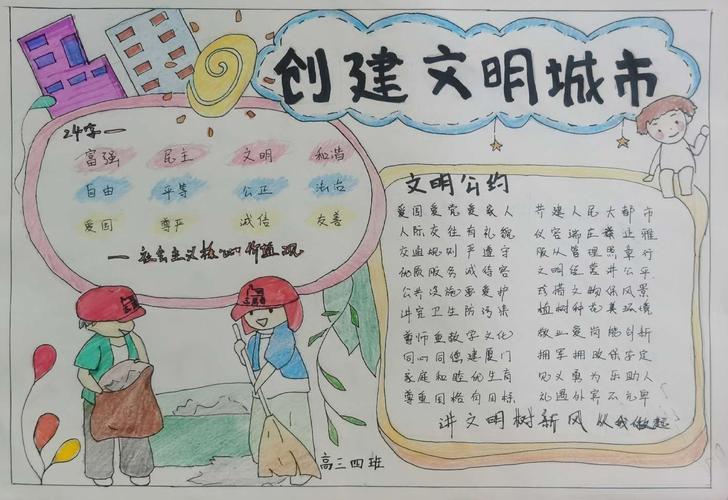 创建文明城市
24字一
富强 民主 文明 和谐
自由 平等 公正 法治
爱国 尊严 诚信 友善
一社会主义核心价值观
文明公约
爱国爱党爱家人 共建人民大都市
人际交往有礼貌 仪容端庄 雅
交通规则严遵守 服从管理照章行
优质服务诚待客 文明经营讲公平
公共设施要爱护 珍惜文物保风景
讲究卫生防污染 植树种花美环境
尊师重教学文化 敬业爱岗能创新
同心同德建厦门 拥军拥政保安定
家庭和睦优生育 见义勇为乐助人
尊重国格有目标 礼遇外宾不亢卑
讲文明树新风从我做起
高三四班